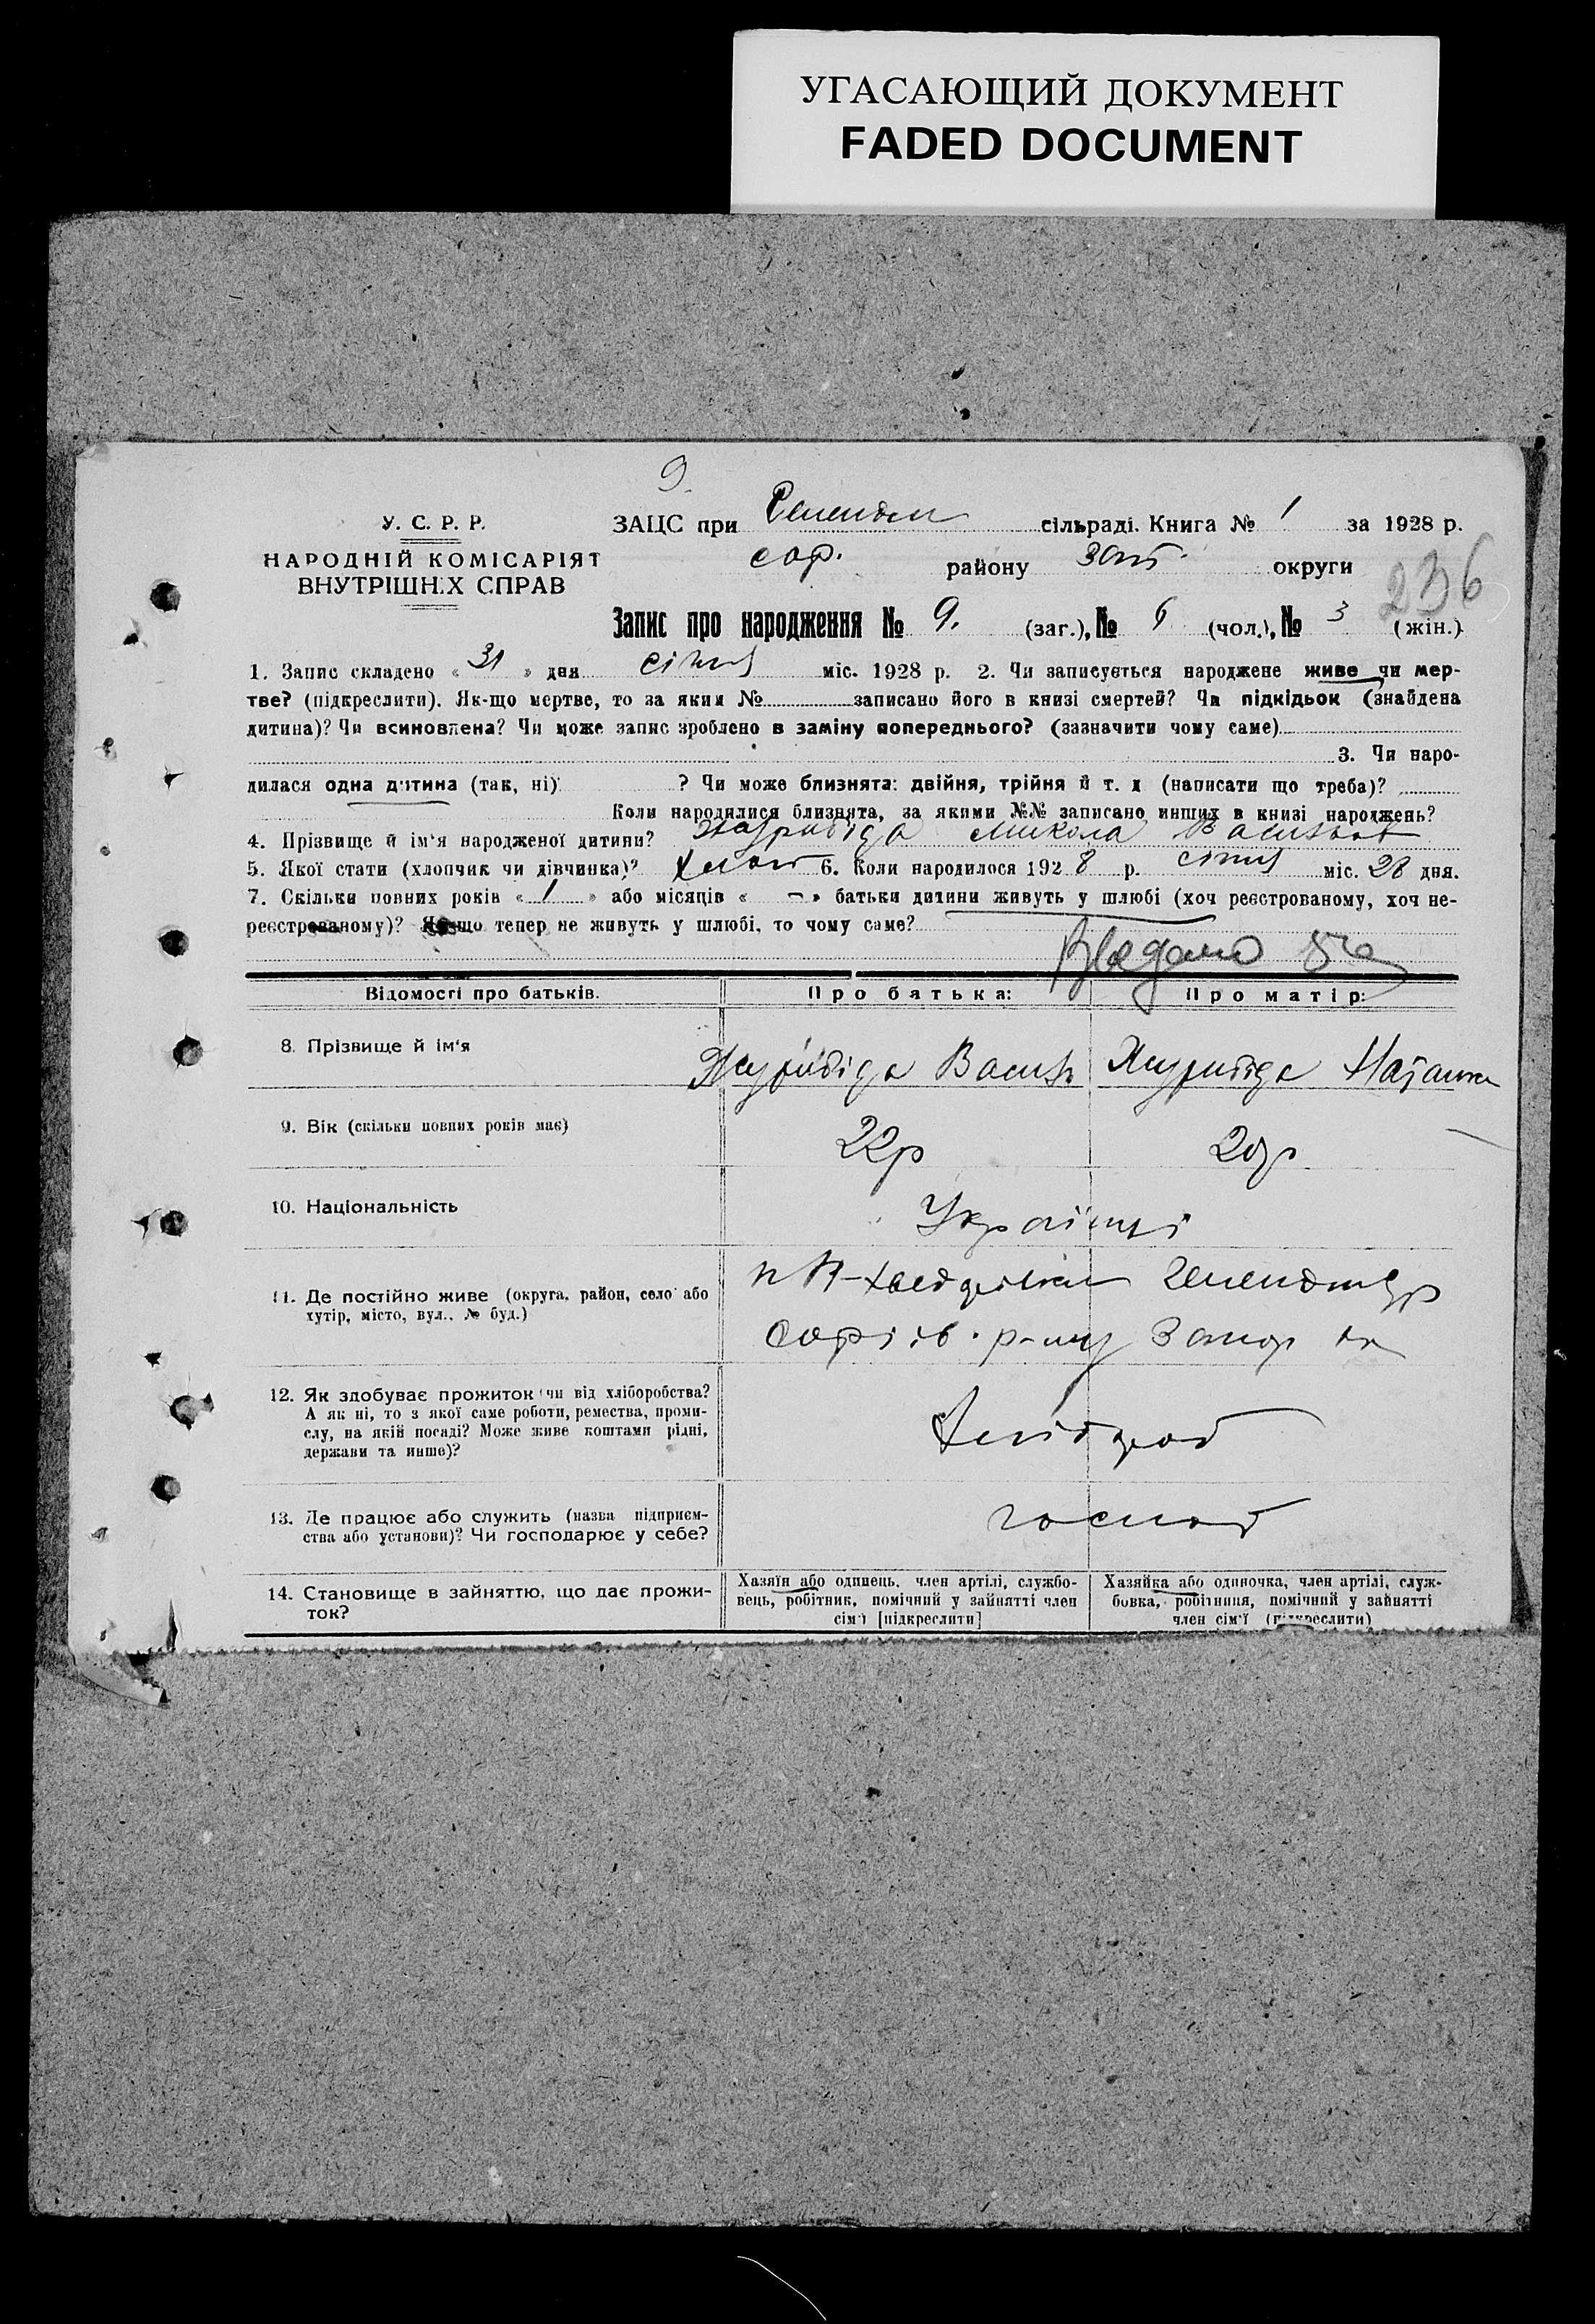 УГАСАЮЩИЙ ДОКУМЕНТ
FADED DOCUMENT
9.
У. С. Р. Р.
НАРОДНІЙ КОМІСАРІЯТ
ВНУТРІШНІХ СПРАВ
ЗАЦС при сільраді. Книга № 1 за 1928 р.
соф. району зап. округи
236
Запис про народження № 9. (заг.), № 6 (чол.), № 3 (жін.)
1. Запис складено « 31 » дня січня міс. 1928 р. 2. Чи записується народжене живе чи мер-
тве? (підкреслити). Як-що мертве, то за яким № записано його в книзі смертей? Чи підкідьок (знайдена
дитина)? Чи всиновлена? Чи може запис зроблено в заміну попереднього? (зазначити чому саме)
3. Чи наро-
дилася одна дитина (так, ні) ? Чи може близнята: двійня, трійня й т. д (написати що треба)?
Коли народилися близнята, за якими №№ записано инших в книзі народжень?
4. Прізвище й ім'я народженої дитини? Журибіда Микола Васильов
5. Якої стати (хлопчик чи дівчинка)? хлоп 6. Коли народилося 1928 р. січня міс. 28 дня.
7. Скільки повних років « 1 » або місяців « - » батьки дитини живуть у шлюбі (хоч реєстрованому, хоч не-
реєстрованому)? Як-що тепер не живуть у шлюбі, то чому саме?
Відомості про батьків. Про батька: Про матір:
8. Прізвище й ім'я Журибіда Василь Журибіда Наталка
9. Вік (скільки повних років має) 22р 20р
10. Національність Українці
11. Де постійно живе (округа, район, село або
хутір, місто, вул., № буд.)
Софіїв. р-ну Запор
12. Як здобуває прожиток (чи від хліборобства?
А як ні, то з якої саме роботи, ремества, проми-
слу, на якій посаді? Може живе коштами рідні,
держави та инше)?
Хлібороб
13. Де працює або служить (назва підприєм-
ства або установи)? Чи господарює у себе?
господ
14. Становище в зайняттю, що дає прожи-
ток?
Хазяїн або одинець, член артілі, службо-
вець, робітник, помічний у зайнятті член
сім'ї [підкреслити]
Хазяйка або одиночка, член артілі, служ-
бовка, робітниця, помічний у зайнятті
член сім'ї (підкреслити)